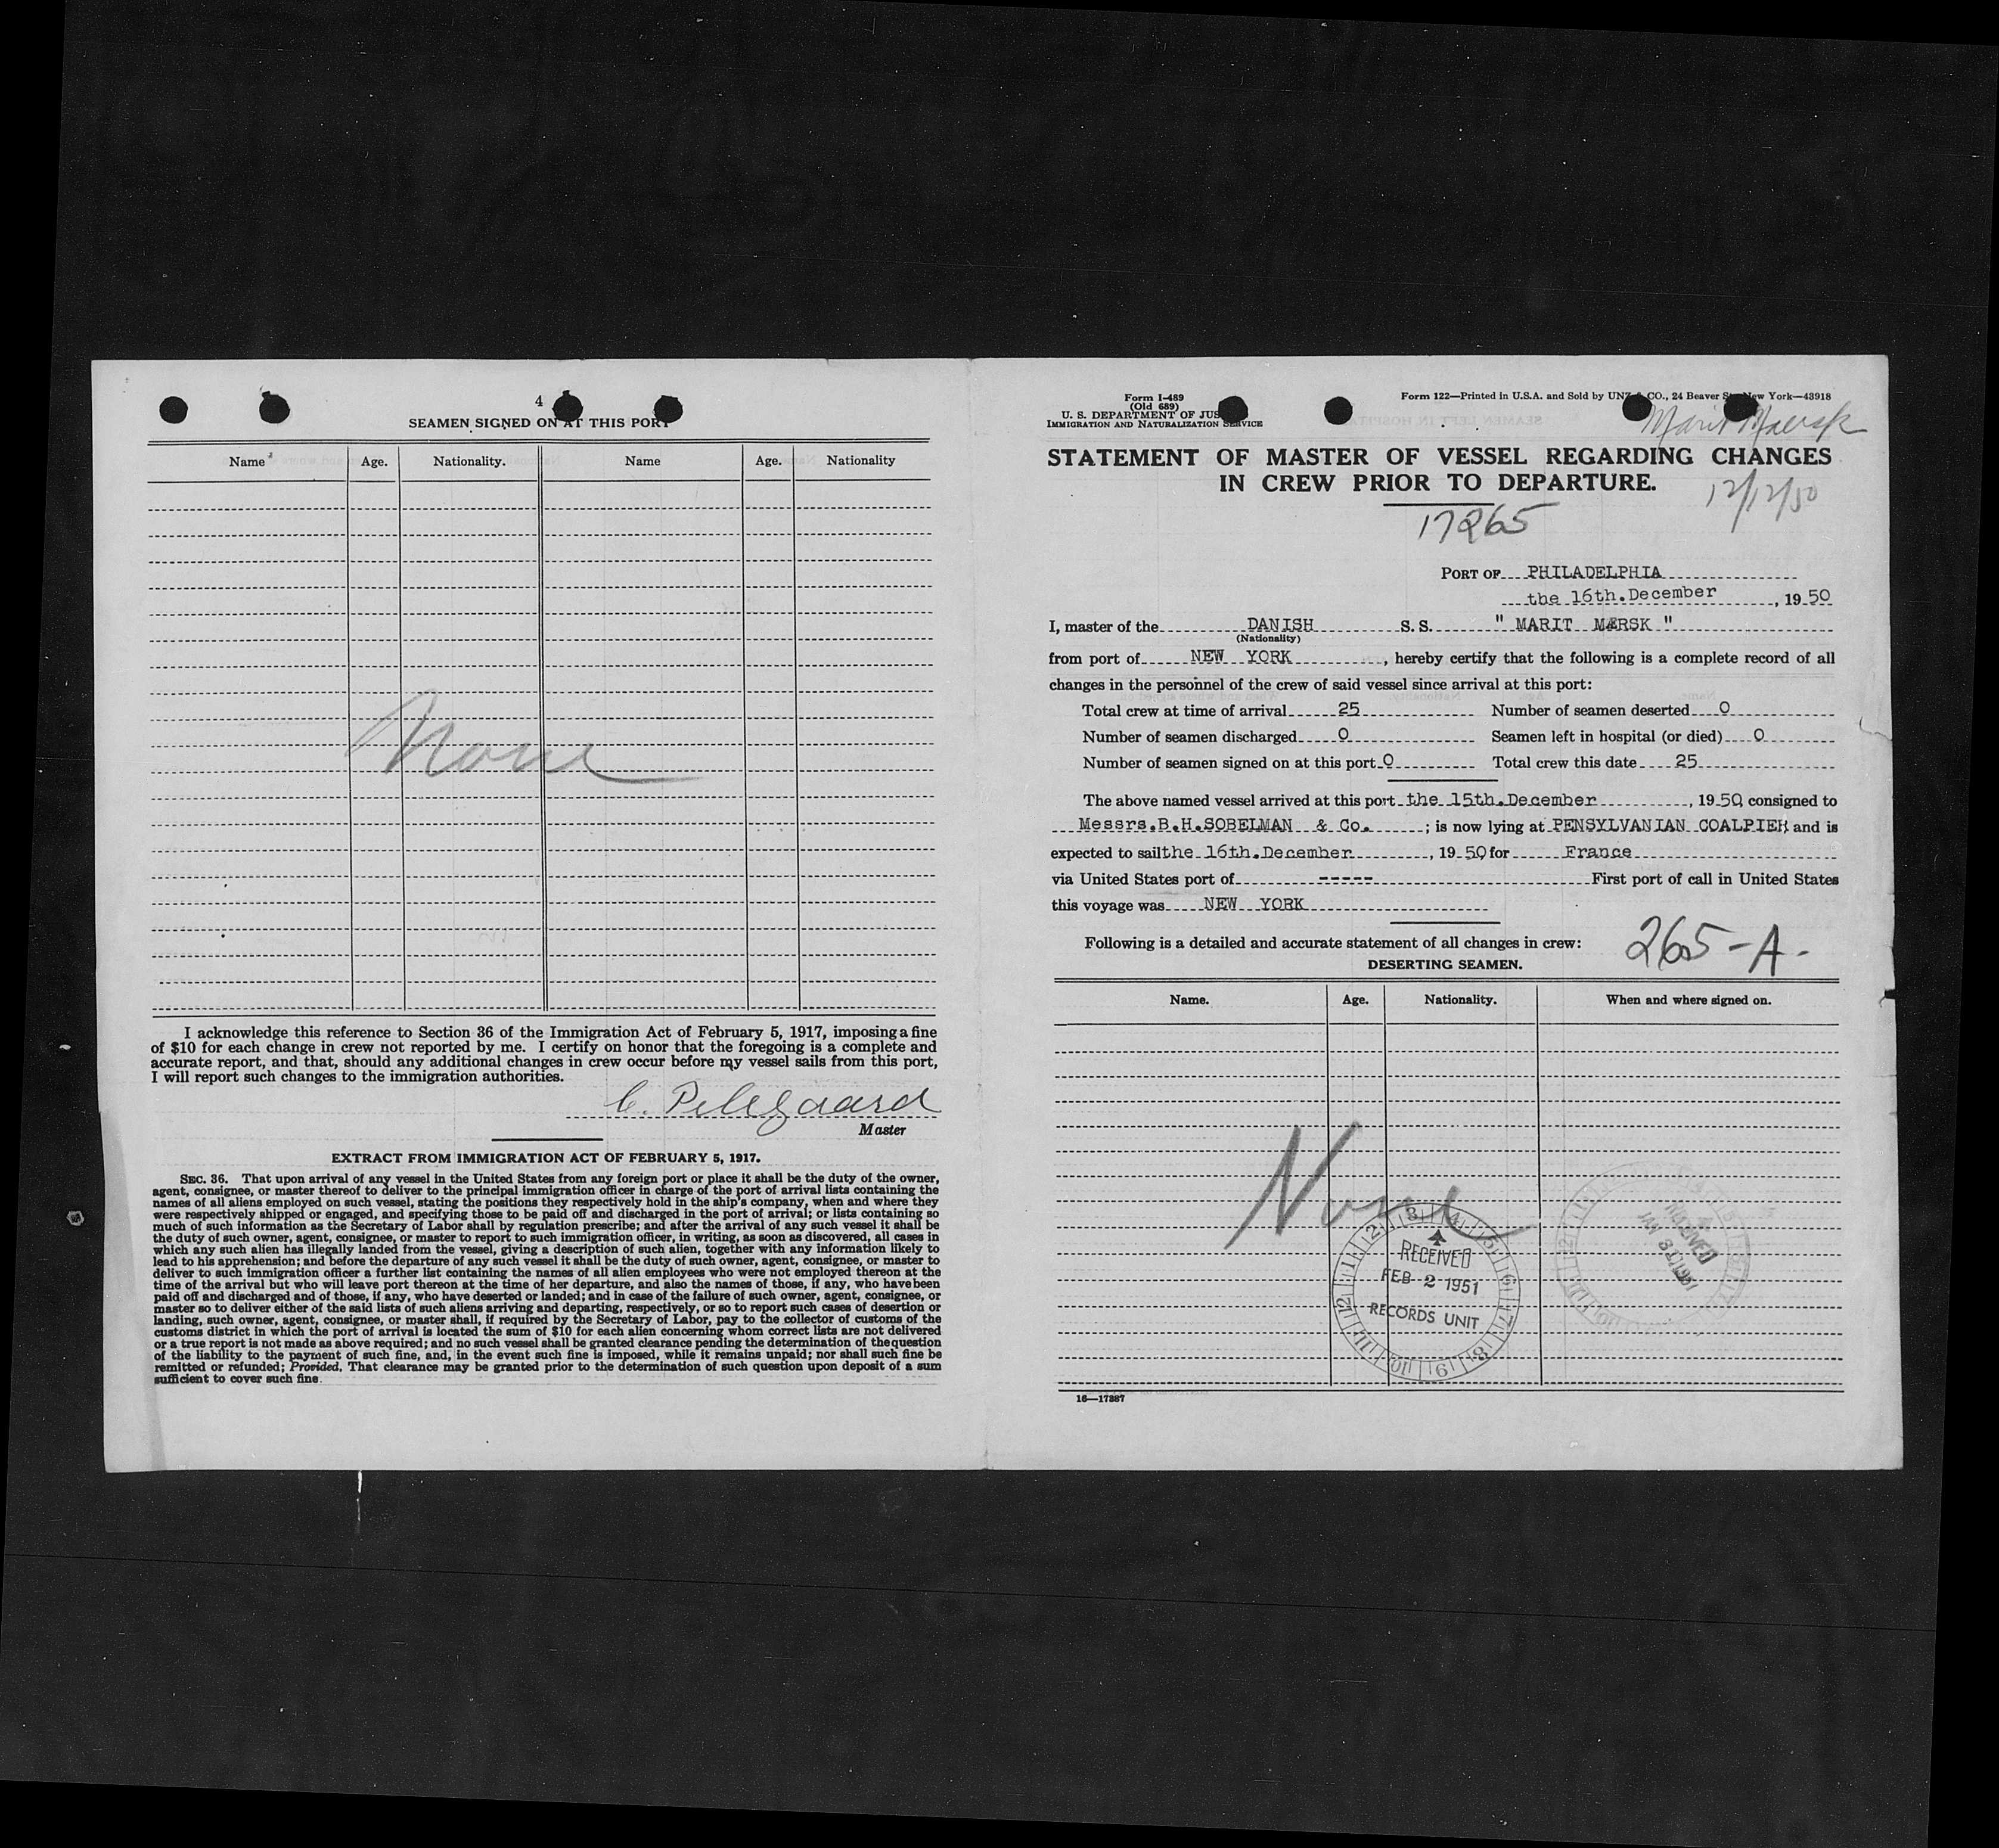 4
SEAMEN SIGNED ON AT THIS PORT
Name Age. Nationality. Name Age. Nationality
None
I acknowledge this reference to Section 36 of the Immigration Act of February 5, 1917, imposing a fine
of $10 for each change in crew not reported by me. I certify on honor that the foregoing is a complete and
accurate report, and that, should any additional changes in crew occur before my vessel sails from this port,
I will report such changes to the immigration authorities.
Master
EXTRACT FROM IMMIGRATION ACT OF FEBRUARY 5, 1917.
SEC. 36. That upon arrival of any vessel in the United States from any foreign port or place it shall be the duty of the owner,
agent, consignee, or master thereof to deliver to the principal immigration officer in charge of the port of arrival lists containing the
names of all aliens employed on such vessel, stating the positions they respectively hold in the ship's company, when and where they
were respectively shipped or engaged, and specifying those to be paid off and discharged in the port of arrival; or lists containing so
much of such information as the Secretary of Labor shall by regulation prescribe; and after the arrival of any such vessel it shall be
the duty of such owner, agent, consignee, or master to report to such immigration officer, in writing, as soon as discovered, all cases in
which any such alien has illegally landed from the vessel, giving a description of such alien, together with any information likely to
lead to his apprehension; and before the departure of any such vessel it shall be the duty of such owner, agent, consignee, or master to
deliver to such immigration officer a further list containing the names of all alien employees who were not employed thereon at the
time of the arrival but who will leave port thereon at the time of her departure, and also the names of those, if any, who have been
paid off and discharged and of those, if any, who have deserted or landed; and in case of the failure of such owner, agent, consignee, or
master so to deliver either of the said lists of such aliens arriving and departing, respectively, or so to report such cases of desertion or
landing, such owner, agent, consignee, or master shall, if required by the Secretary of Labor, pay to the collector of customs of the
customs district in which the port of arrival is located the sum of $10 for each alien concerning whom correct lists are not delivered
or a true report is not made as above required; and no such vessel shall be granted clearance pending the determination of the question
of the liability to the payment of such fine, and, in the event such fine is imposed, while it remains unpaid; nor shall such fine be
remitted or refunded; Provided, That clearance may be granted prior to the determination of such question upon deposit of a sum
sufficient to cover such fine.
Form I-489
(Old 689)
U. S. DEPARTMENT OF JUS
IMMIGRATION AND NATURALIZATION SERVICE
Form 122—Printed in U.S.A. and Sold by UNZ & CO., 24 Beaver St., New York—43918
Marit Maersk
STATEMENT OF MASTER OF VESSEL REGARDING CHANGES
IN CREW PRIOR TO DEPARTURE.
12/12/50
17265
PORT OF PHILADELPHIA
the 16th. December, 1950
I, master of the DANISH S. S. " MARIT MÆRSK "
(Nationality)
from port of NEW YORK, hereby certify that the following is a complete record of all
changes in the personnel of the crew of said vessel since arrival at this port:
Total crew at time of arrival 25 Number of seamen deserted 0
Number of seamen discharged 0 Seamen left in hospital (or died) 0
Number of seamen signed on at this port 0 Total crew this date 25
The above named vessel arrived at this port the 15th. December, 1950 consigned to
Messrs. B.H. SOBELMAN & Co.; is now lying at PENSYLVANIAN COALPIER and is
expected to sail the 16th. December, 1950 for France
via United States port of ----- First port of call in United States
this voyage was NEW YORK
Following is a detailed and accurate statement of all changes in crew:
265-A-
DESERTING SEAMEN.
Name. Age. Nationality. When and where signed on.
None
RECEIVED
FEB 2 1951
RECORDS UNIT
RECEIVED
JAN 31 1951
16—17387